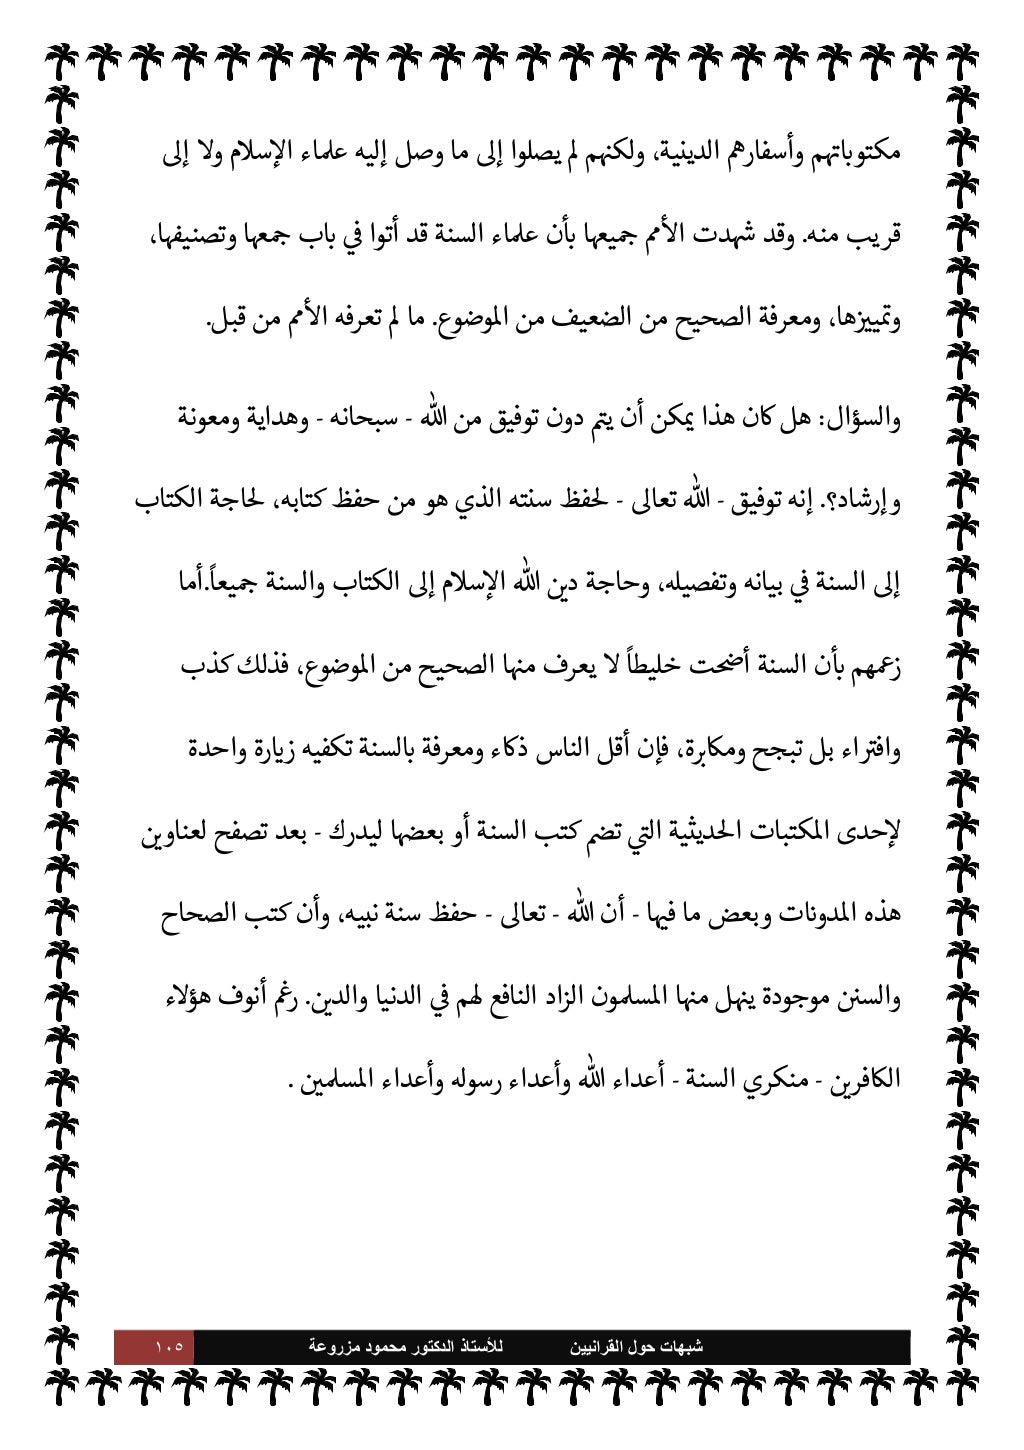 مكتوباتهم وأسفارهم الدينية، ولكنهم لم يصلوا إلى ما وصل إليه علماء الإسلام ولا إلى
قريب منه. وقد شهدت الأمم جميعها بأن علماء السنة قد أتوا في باب جمعها وتصنيفها،
وتمييزها، ومعرفة الصحيح من الضعيف من الموضوع. ما لم تعرفه الأمم من قبل.
والسؤال: هل كان هذا يمكن أن يتم دون توفيق من الله - سبحانه - وهداية ومعونة
وإرشاد؟. إنه توفيق - الله تعالى - لحفظ سنته الذي هو من حفظ كتابه، لحاجة الكتاب
إلى السنة في بيانه وتفصيله، وحاجة دين الله الإسلام إلى الكتاب والسنة جميعاً.أما
زعمهم بأن السنة أضحت خليطاً لا يعرف منها الصحيح من الموضوع، فذلك كذب
وافتراء بل تبجح ومكابرة، فإن أقل الناس ذكاء ومعرفة بالسنة تكفيه زيارة واحدة
لإحدى المكتبات الحديثية التي تضم كتب السنة أو بعضها ليدرك - بعد تصفح لعناوين
هذه المدونات وبعض ما فيها - أن الله - تعالى - حفظ سنة نبيه، وأن كتب الصحاح
والسنن موجودة ينهل منها المسلمون الزاد النافع لهم في الدنيا والدين. رغم أنوف هؤلاء
الكافرين - منكري السنة - أعداء الله وأعداء رسوله وأعداء المسلمين .
شبهات حول القرانيين للأستاذ الدكتور محمود مزروعة ١٠٥